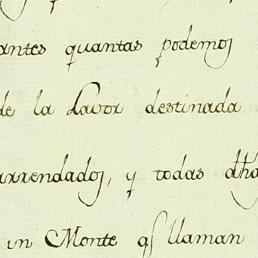 antes quantas podemos
de la Lavor destinada
arrendados, y todas dhas
un Monte qe llaman